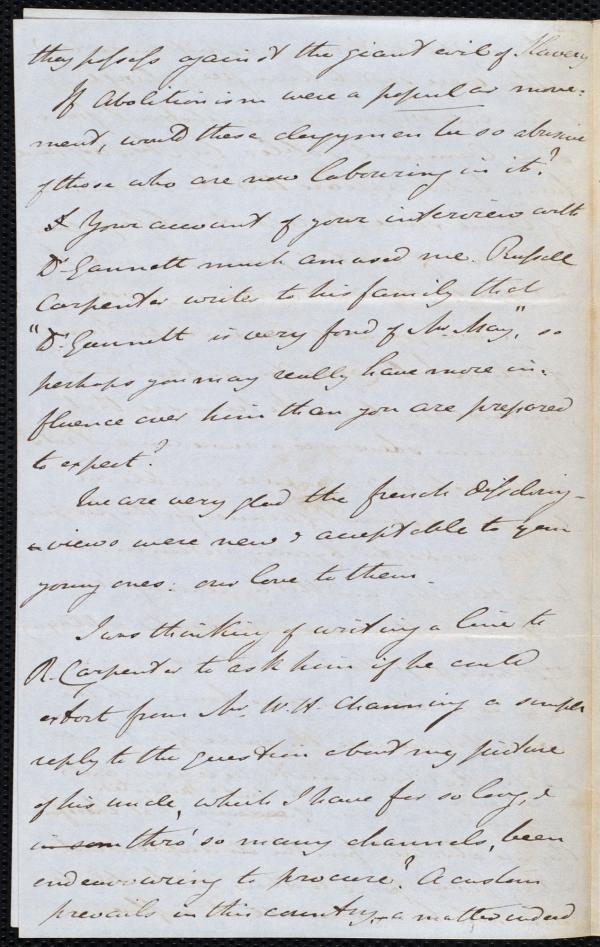 they possess against the giant evil of Slavery
If Abolitionism were a popular move-
ment, would these clergymen be so abusive
of those who are now labouring in it?
Your account of your interview with
Dr. Gannett much amused me. Russell
Carpenter writes to his family that
"Dr. Gannett is very fond of Mr. May", so
perhaps you may really have more in-
fluence over him than you are prepared
to expect?
We are very glad the french dissolving-
views were new & acceptable to your
young ones: our love to them.
I was thinking of writing a line to
R. Carpenter to ask him if he could
extort from Mr. W. H. Channing a simple
reply to the question about my picture
of his uncle, which I have for so long, &
in som thro' so many channels, been
endeavouring to procure? A custom
prevails in this country, a matter indeed